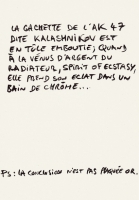 LA GACHETTE DE L'AK 47
DITE KALASHNIKOV EST
EN TÔLE EMBOUTIE; QUAND
À LA VÉNUS D'ARGENT DU
RADIATEUR, SPIRIT OF ECSTASY,
ELLE PREND SON ECLAT DANS UN
BAIN DE CHROME...
PS: LA CONCLUSION N'EST PAS PLAQUÉE OR.